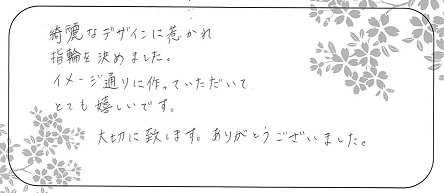 綺麗なデザインに惹かれ
指輪を決めました。
イメージ通りに作っていただいて
とても嬉しいです。
大切に致します。ありがとうございました。